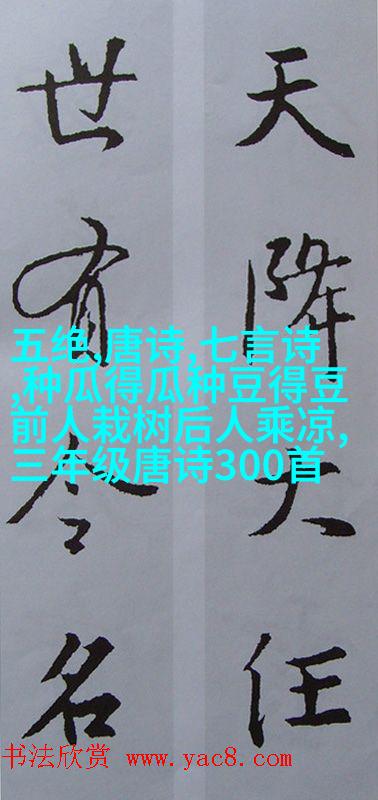 天降大任
世有令名
五绝,唐诗,七言诗
,种瓜得瓜种豆得豆
前人栽树后人乘凉,
三年级唐诗300首
书法欣赏 www.yac8.com